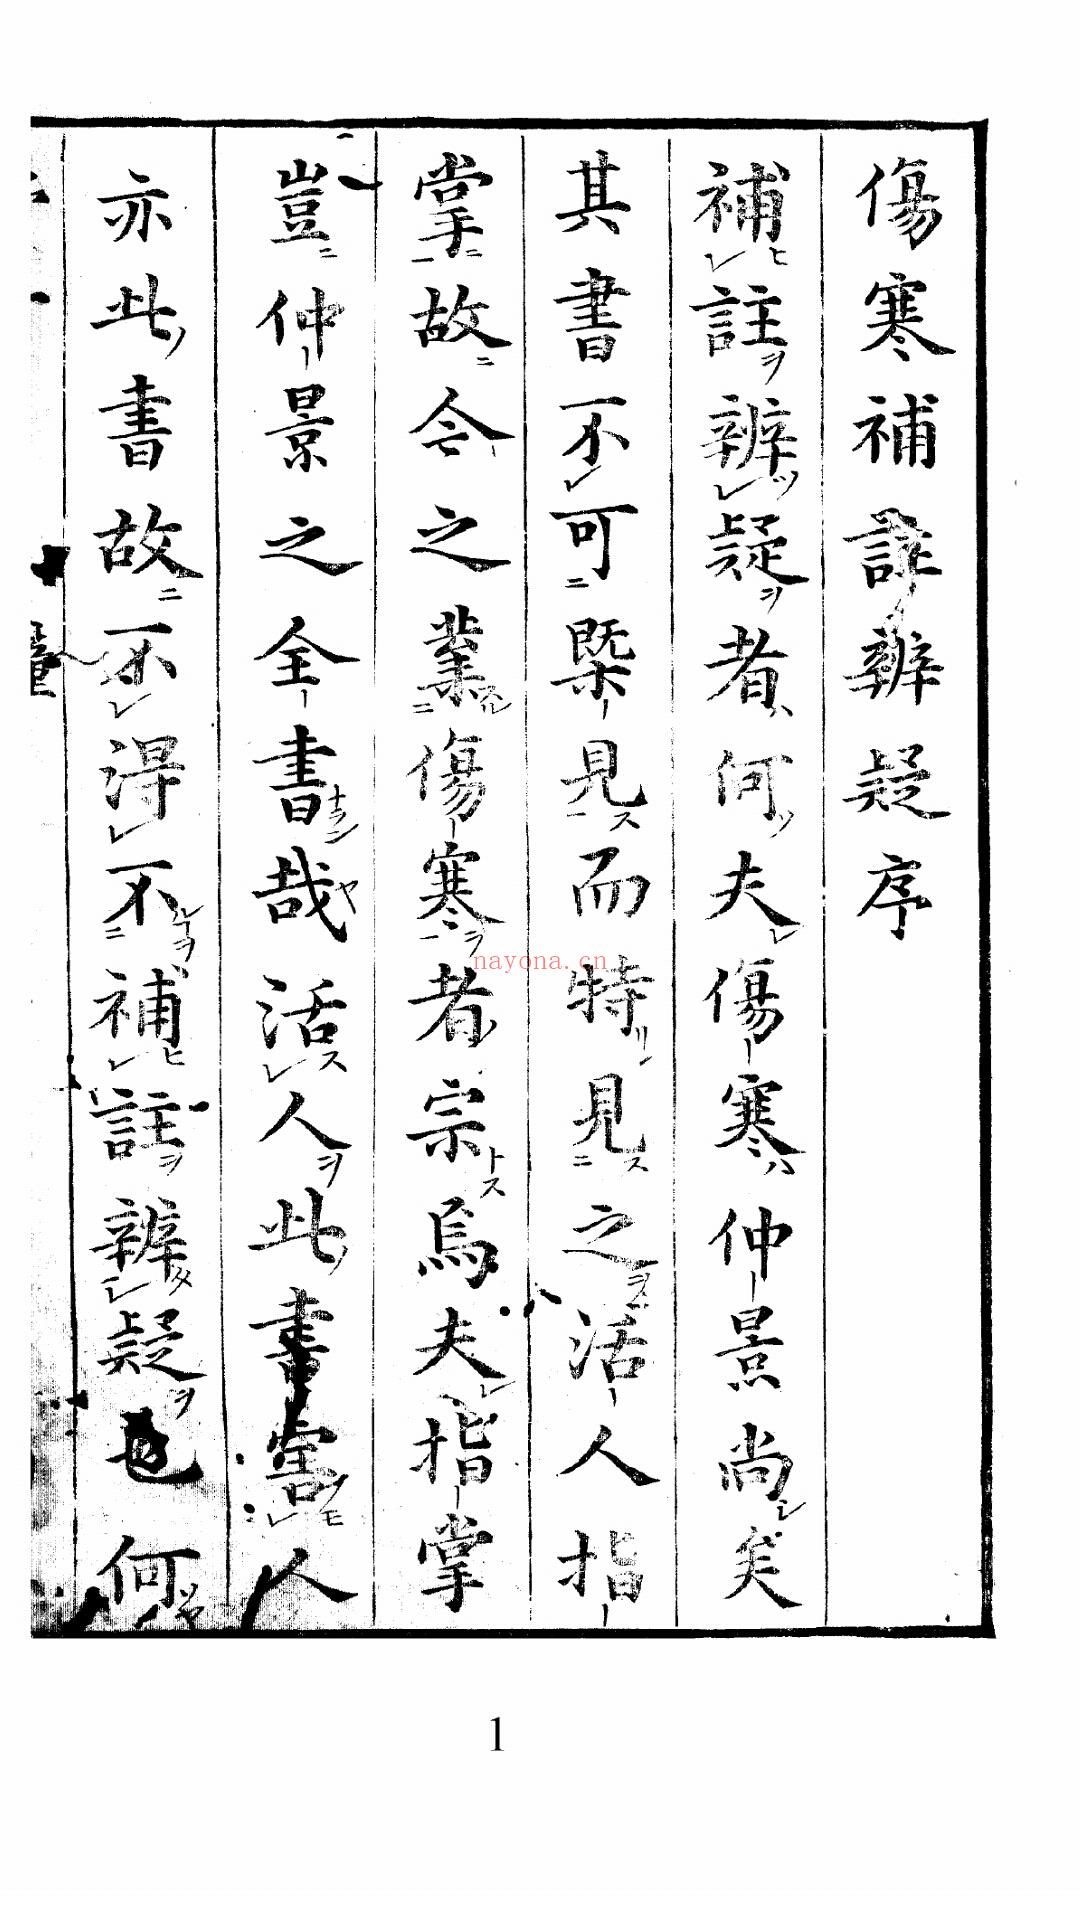 傷寒補註辨疑序
補註辨疑者何夫傷寒仲景尚矣
其書不可槩見而特見之活人指
掌故今之業傷寒者宗焉夫指掌
豈仲景之全書哉活人此書害人
亦此書故不得不補註辨疑也何
nayona.cn
1